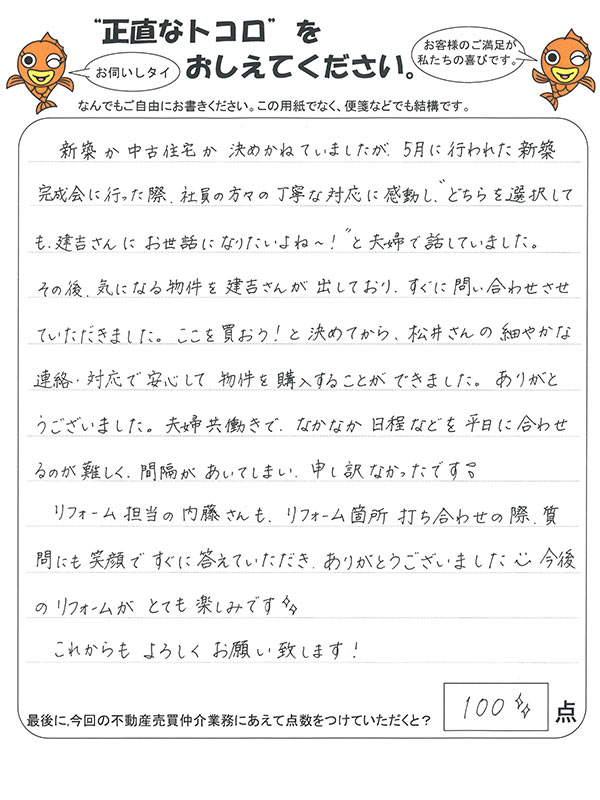 "正直なトコロ"を
おしえてください。
お伺いしタイ
お客様のご満足が
私たちの喜びです。
なんでもご自由にお書きください。この用紙でなく、便箋などでも結構です。
新築か中古住宅か決めかねていましたが、5月に行われた新築
完成会に行った際、社員の方々の丁寧な対応に感動し、"どちらを選択して
も、建吉さんにお世話になりたいよね〜!"と夫婦で話していました。
その後、気になる物件を建吉さんが出しており、すぐに問い合わせさせ
ていただきました。ここを買おう!と決めてから、松井さんの細やかな
連絡・対応で安心して物件を購入することができました。ありがと
うございました。夫婦共働きで、なかなか日程などを平日に合わせ
るのが難しく、間隔があいてしまい、申し訳なかったです
リフォーム担当の内藤さんも、リフォーム箇所打ち合わせの際、質
問にも笑顔ですぐに答えていただき、ありがとうございました 今後
のリフォームがとても楽しみです
これからもよろしくお願い致します!
最後に、今回の不動産売買仲介業務にあえて点数をつけていただくと? 100 点